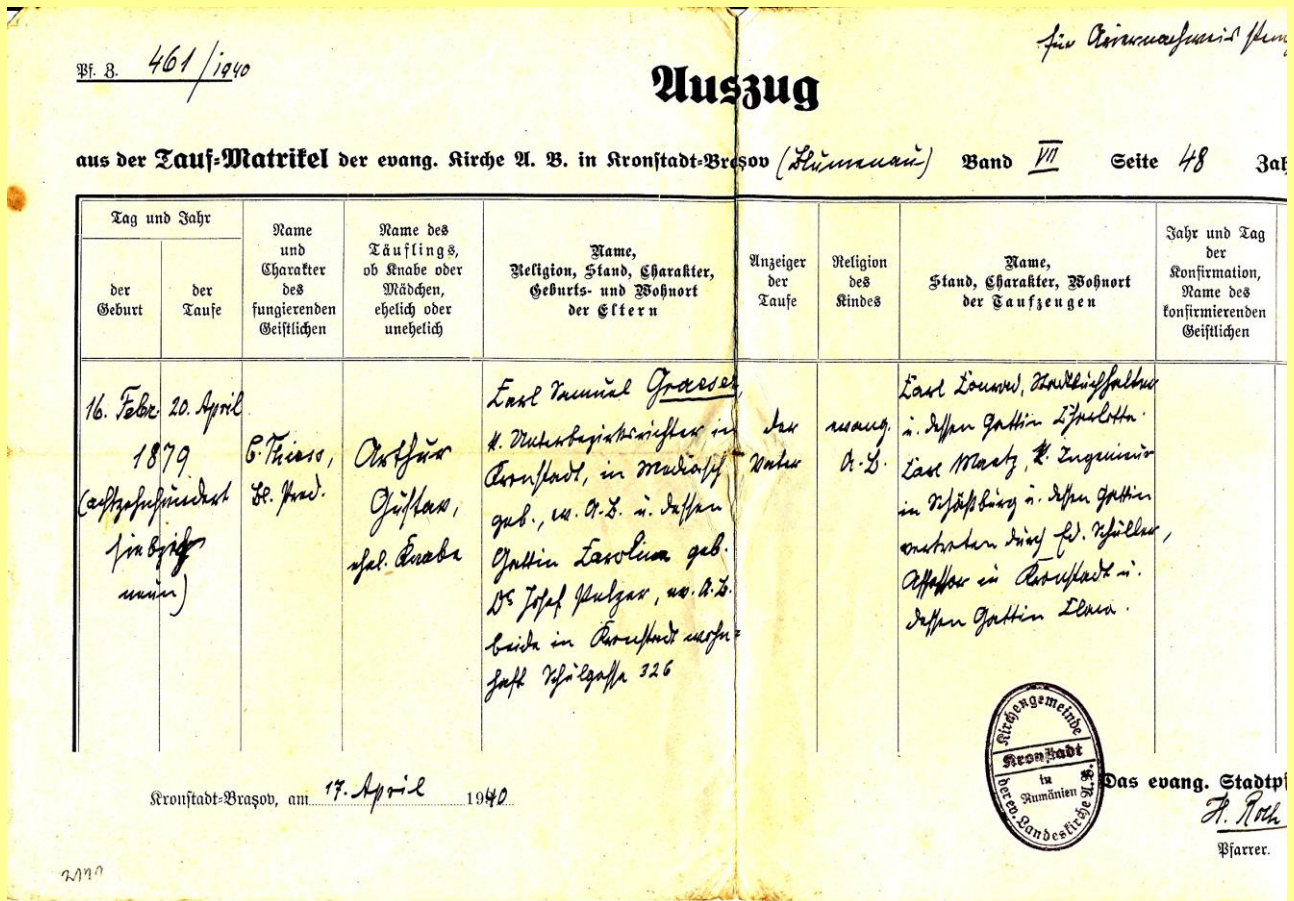 für Ariernachweis
Pf. Z. 461/1940
Auszug
aus der Tauf-Matrikel der evang. Kirche A. B. in Kronstadt-Brașov (Blumenau) Band VII Seite 48 Zah
Tag und Jahr
der Geburt
der Taufe
Name
und
Charakter
des
fungierenden
Geistlichen
Name des
Täuflings,
ob Knabe oder
Mädchen,
ehelich oder
unehelich
Name,
Religion, Stand, Charakter,
Geburts- und Wohnort
der Eltern
Anzeiger
der
Taufe
Religion
des
Kindes
Name,
Stand, Charakter, Wohnort
der Taufzeugen
Jahr und Tag
der
Konfirmation,
Name des
konfirmierenden
Geistlichen
16. Febr. 20. April
1879
(achtzehnhundert
siebzig
neun)
C. Thiess,
Bl. Pred.
Arthur
Gustav,
ehel. Knabe
Carl Samuel Graeser,
k. Unterbezirksrichter in
Kronstadt, in Mediasch
geb., ev. A. B. u. dessen
Gattin Carolina geb.
Dr Josef Pulzer, ev. A. B.
beide in Kronstadt wohn=
haft Schulgasse 326
der
Vater
evang.
A. B.
Carl Conrad, Stadtbuchhalter
u. dessen Gattin Charlotte.
Carl Maetz, k. Ingenieur
in Schäßburg u. dessen Gattin
vertreten durch Ed. Schuller,
Assessor in Kronstadt u.
dessen Gattin Clara.
Kirchengemeinde
Kronstadt
in
Rumänien
der ev. Landeskirche A. B.
Kronstadt-Brașov, am 17. April 1940
Das evang. Stadtpf
H. Roth
Pfarrer.